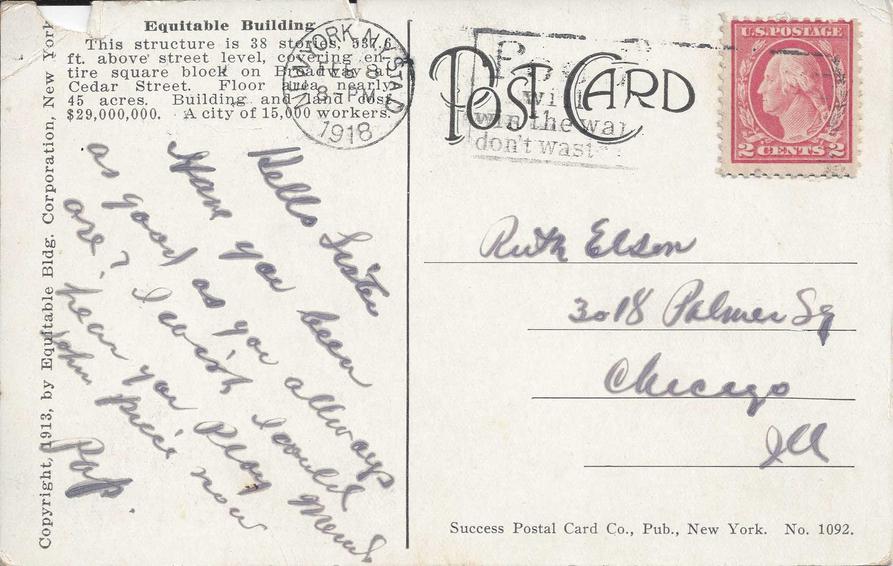 Equitable Building
This structure is 38 stories, 537.6
ft. above street level, covering en-
tire square block on Broadway at
Cedar Street. Floor area nearly
45 acres. Building and land cost
$29,000,000. A city of 15,000 workers.
Copyright, 1913, by Equitable Bldg. Corporation, New York
NEW YORK, N.Y. STA D
FEB 8
8 PM
1918
POST CARD
will
win the war
don't wast
U.S. POSTAGE
2 CENTS 2
Hello Sister
Have you been
as good as you allways
are? I wish I could
hear you Play
John piece now
Pop.
Ruth Elson
3018 Palmer Sq
Chicago
Ill
Success Postal Card Co., Pub., New York. No. 1092.